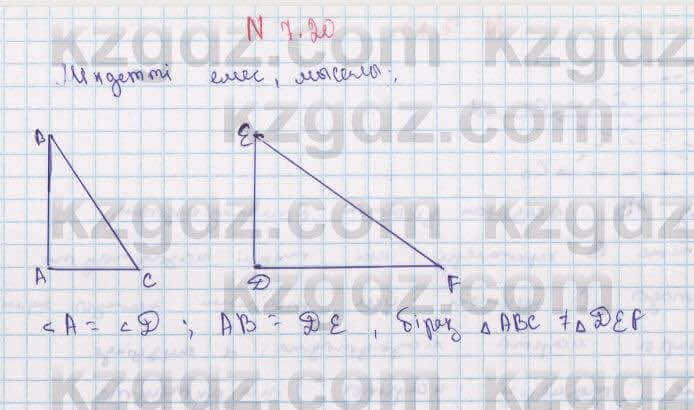 N 7.20
Міндетті емес, мысалы:
B
E
A
C
D
F
∠A = ∠D ; AB = DE , бірақ △ABC ≠ △DEF
kzgdz.com
kzgdz.com
kzgdz.com
kzgdz.com
kzgdz.com
kzgdz.com